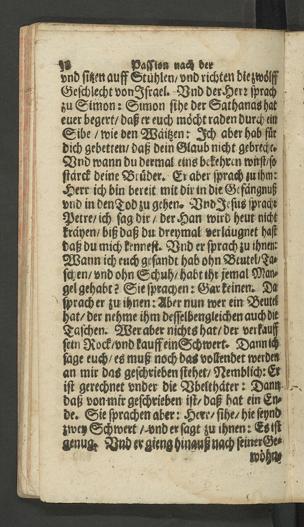 98 Passion nach der
vnd sitzen auff Stühlen/ vnd richten die zwölff
Geschlecht von Israel. Vnd der Herr sprach
zu Simon: Simon sihe der Sathanas hat
euer begert/ daß er euch möcht raden durch ein
Sibe/ wie den Wäitzen: Ich aber hab für
dich gebetten/ daß dein Glaub nicht gebreche.
Vnd wann du dermal eins bekehren wirst/ so
stärck deine Brüder. Er aber sprach zu ihm:
Herr ich bin bereit mit dir in die Gefängnuß
vnd in den Tod zu gehen. Vnd Jesus sprach:
Petre/ ich sag dir/ der Han wird heut nicht
kräyen/ biß daß du dreymal verläugnet hast
daß du mich kennest. Vnd er sprach zu ihnen:
Wann ich euch gesandt hab ohn Beutel/ Ta-
schen/ vnd ohn Schuh/ habt ihr jemal Man-
gel gehabt? Sie sprachen: Gar keinen. Da
sprach er zu ihnen: Aber nun wer ein Beutel
hat/ der nehme ihm desselbengleichen auch die
Taschen. Wer aber nichts hat/ der verkauff
sein Rock/ vnd kauff ein Schwert. Dann ich
sage euch/ es muß noch das vollendet werden
an mir das geschrieben stehet/ Nemblich: Er
ist gerechnet vnder die Vbelthäter: Dann
daß von mir geschrieben ist/ daß hat ein En-
de. Sie sprachen aber: Herr/ sihe/ hie seynd
zwey Schwert/ vnd er sagt zu ihnen: Es ist
genug. Vnd er gieng hinauß nach seiner Ge-
wöhn-